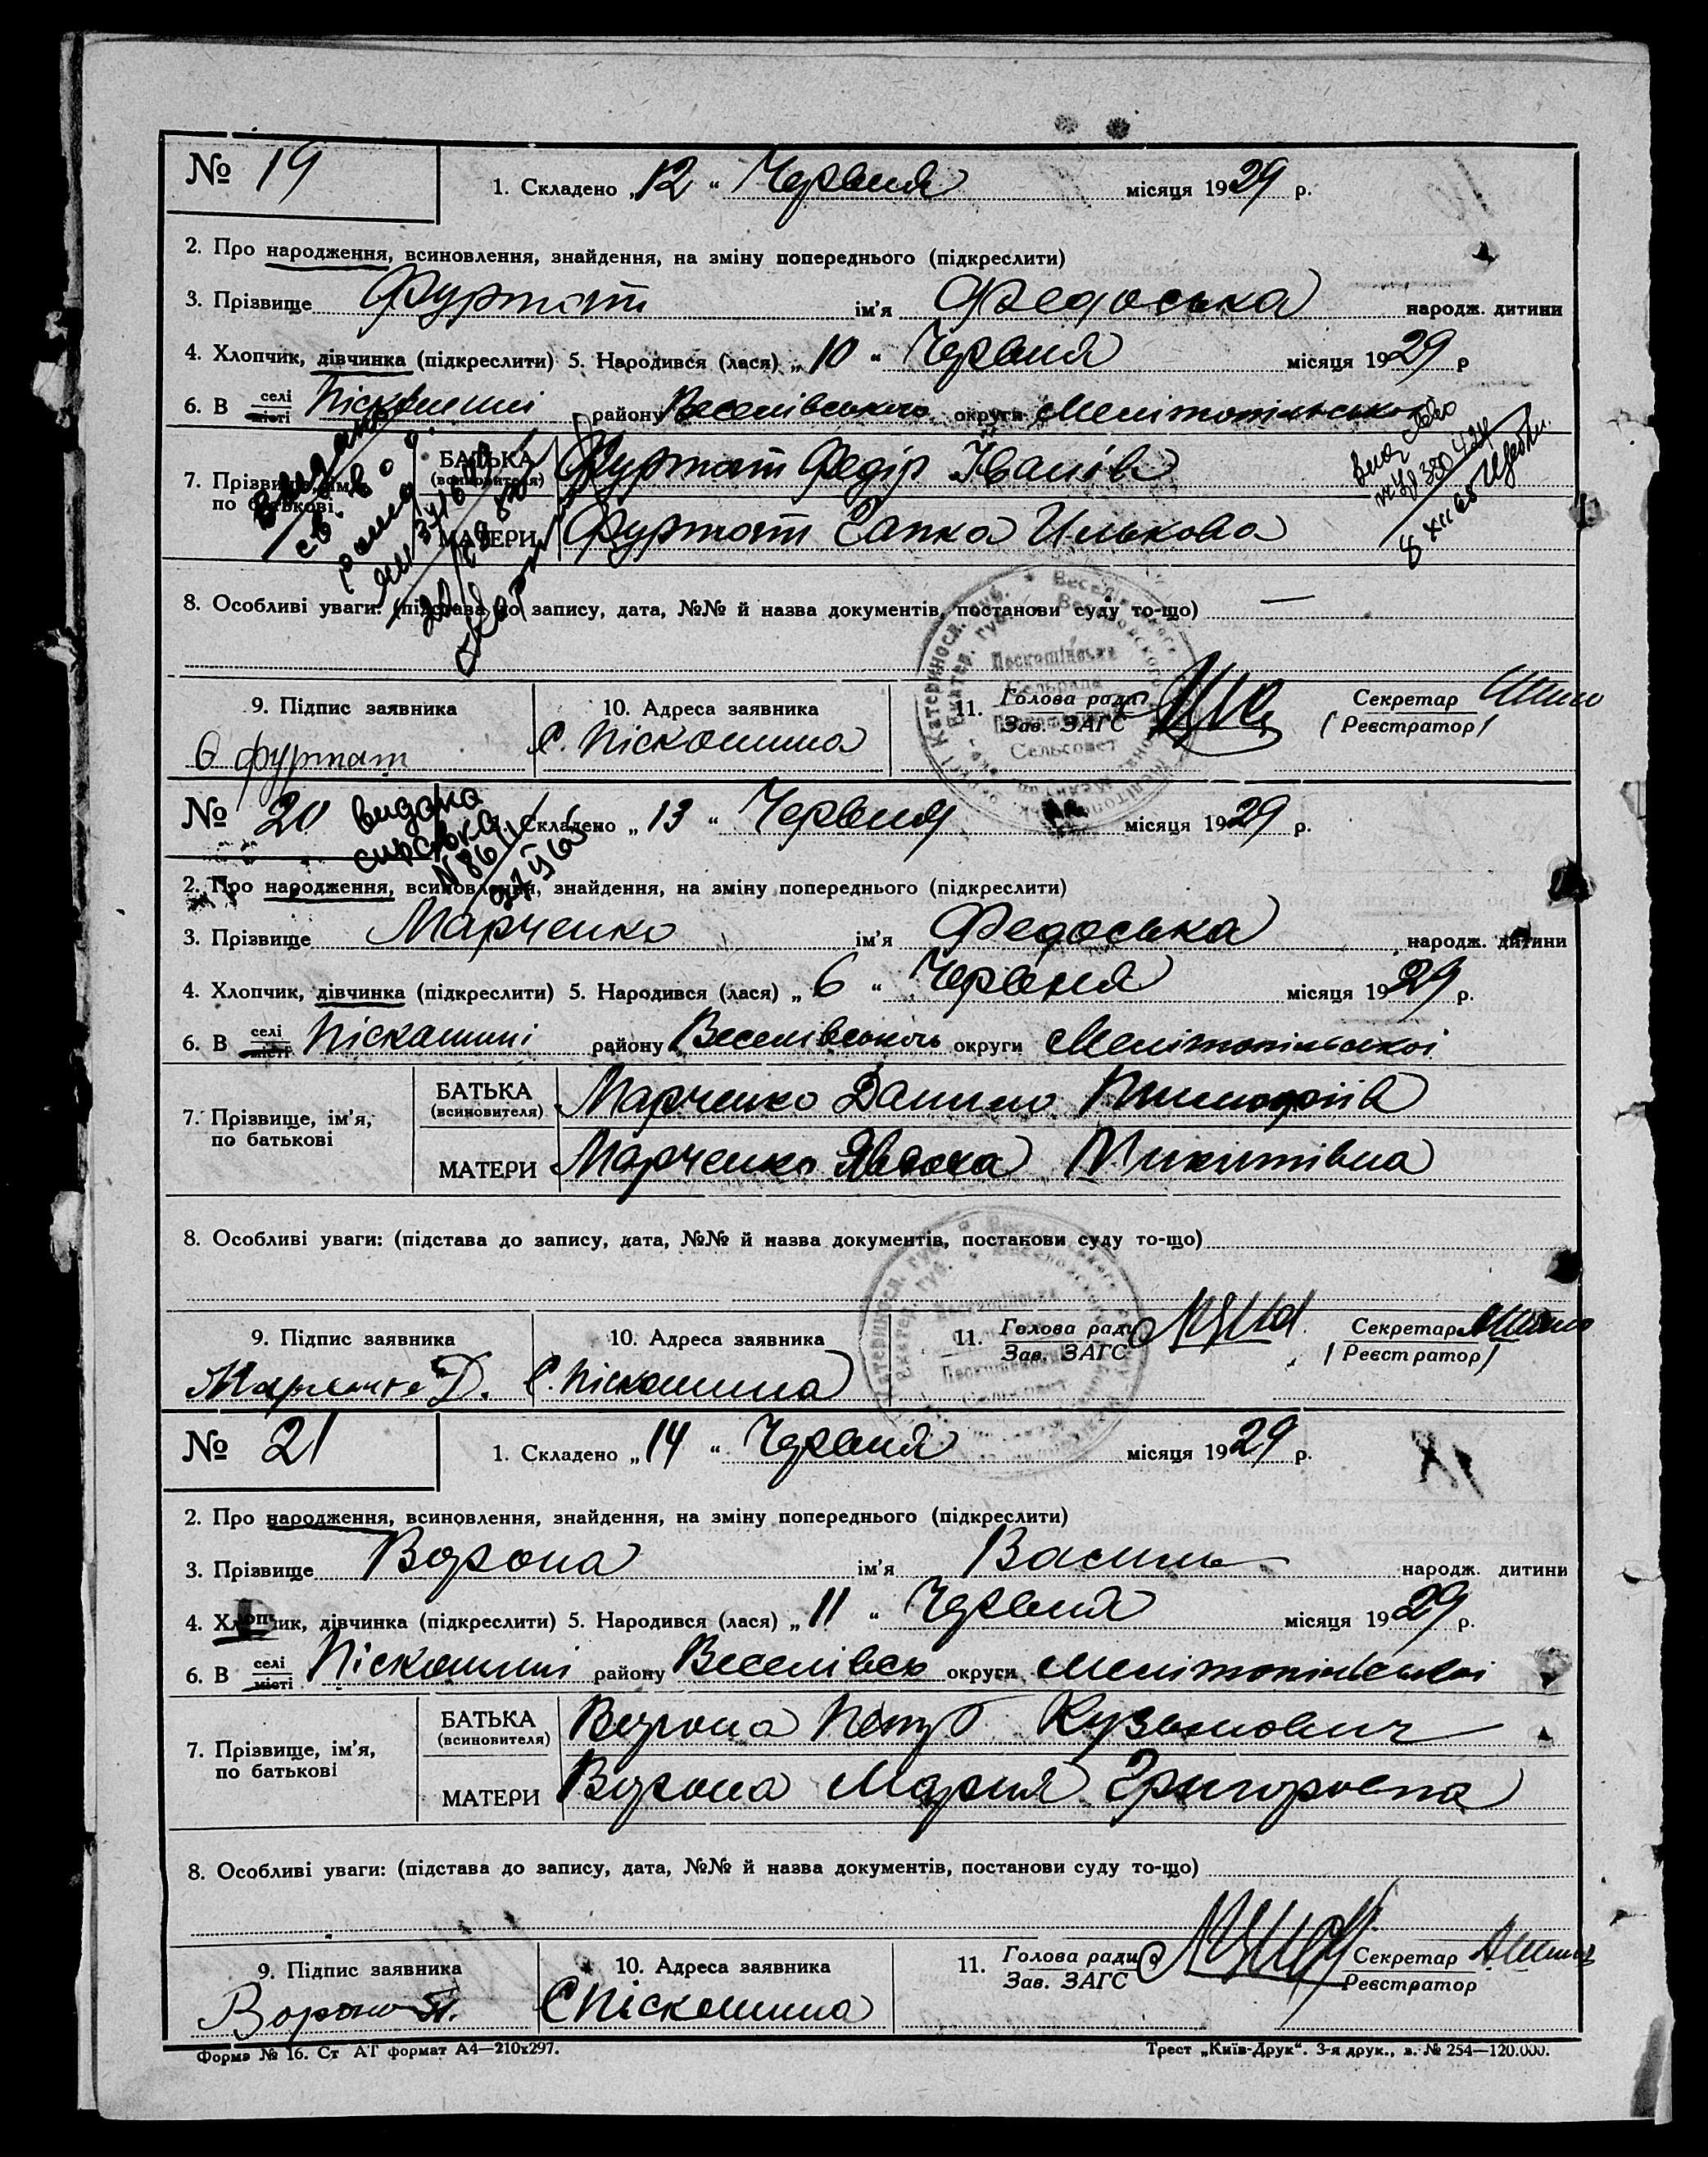 № 19
1. Складено „12" Червня місяця 1929 р.
2. Про народження, всиновлення, знайдення, на зміну попереднього (підкреслити)
3. Прізвище Фурман ім'я Федоська народж. дитини
4. Хлопчик, дівчинка (підкреслити) 5. Народився (лася) „10" Червня місяця 1929 р
6. В селі місті Піскошині району Веселівського округи Мелітопільськоі
7. Прізвище, ім'я, по батькові
БАТЬКА (всиновителя) Федір Іванів
МАТЕРИ Гапка Илькова
8. Особливі уваги: (підстава до запису, дата, №№ й назва документів, постанови суду то-що) —
9. Підпис заявника
10. Адреса заявника
11. Голова ради Зав. ЗАГС
Секретар (Реєстратор)
с. Піскошина
№ 20
видана
справка
1. Складено „13" Червня місяця 1929 р.
2. Про народження, всиновлення, знайдення, на зміну попереднього (підкреслити)
3. Прізвище Марченко ім'я Федоська народж. дитини
4. Хлопчик, дівчинка (підкреслити) 5. Народився (лася) „6" Червня місяця 1929 р.
6. В селі місті Піскошині району Веселівського округи Мелітопільськоі
7. Прізвище, ім'я, по батькові
БАТЬКА (всиновителя) Марченко Данило
МАТЕРИ Марченко Явдоха Микитівна
8. Особливі уваги: (підстава до запису, дата, №№ й назва документів, постанови суду то-що)
9. Підпис заявника
10. Адреса заявника
11. Голова ради Зав. ЗАГС
Секретар (Реєстратор)
Марченко Д. С. Піскошина
№ 21
1. Складено „14" Червня місяця 1929 р.
2. Про народження, всиновлення, знайдення, на зміну попереднього (підкреслити)
3. Прізвище Ворона ім'я Василь народж. дитини
4. Хлопчик, дівчинка (підкреслити) 5. Народився (лася) „11" Червня місяця 1929 р.
6. В селі місті Піскошині району Веселівськ округи Мелітопільськоі
7. Прізвище, ім'я, по батькові
БАТЬКА (всиновителя) Ворона Петро Кузьмович
МАТЕРИ Ворона Мария Григоровна
8. Особливі уваги: (підстава до запису, дата, №№ й назва документів, постанови суду то-що)
9. Підпис заявника
10. Адреса заявника
11. Голова ради Зав. ЗАГС
Секретар Реєстратор
Ворона П. С Піскошина
Форма № 16. Ст АТ формат А4—210х297.
Трест „Київ-Друк". 3-я друк., з. № 254—120.000.